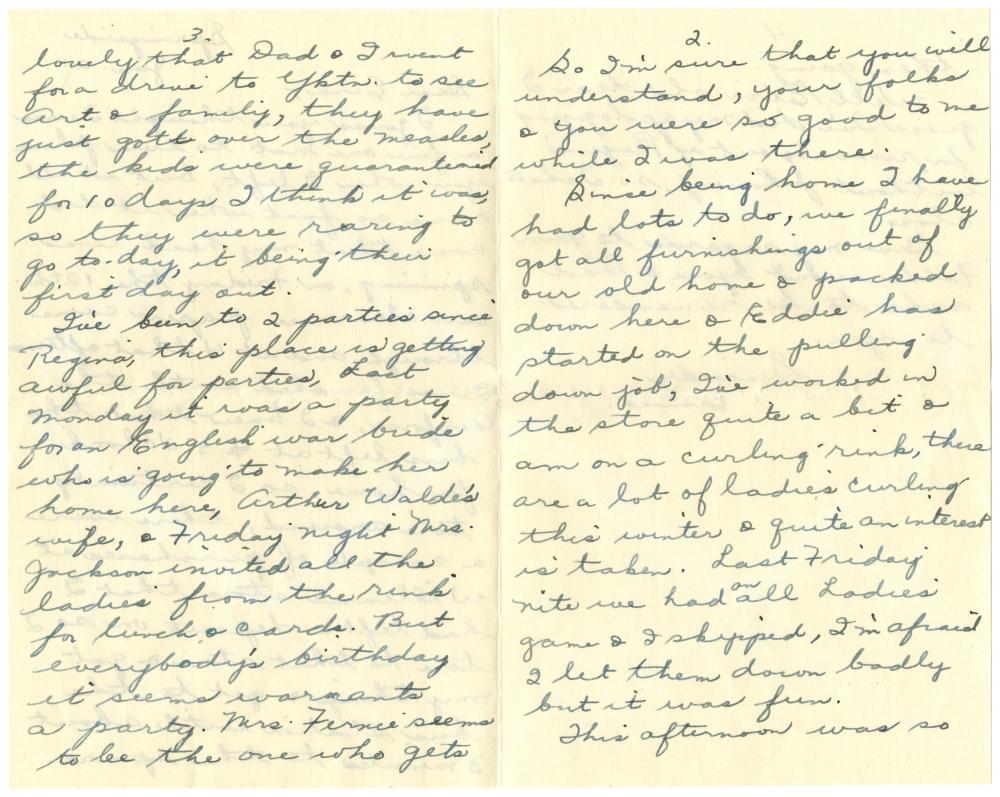 2.
So I'm sure that you will
understand, your folks
& you were so good to me
while I was there.
Sinse being home I have
had lots to do, we finally
got all furnishings out of
our old home & packed
down here & Eddie has
started on the pulling
down job, I've worked in
the store quite a bit &
am on a curling rink, there
are a lot of ladies curling
this winter & quite an interest
is taken. Last Friday
nite we had an all Ladies
game & I skipped, I'm afraid
I let them down badly
but it was fun.
This afternoon was so
3.
lovely that Dad & I went
for a drive to Yktn. to see
Art & family, they have
just gott over the measles,
the kids were quarantined
for 10 days I think it was,
so they were raring to
go to-day, it being their
first day out.
I've been to 2 parties since
Regina, this place is getting
awful for parties, Last
Monday it was a party
for an English war bride
who is going to make her
home here, Arthur Walde's
wife, & Friday night Mrs.
Jackson invited all the
ladies from the rink
for lunch & cards. But
everybody's birthday
it seems warrants
a party. Mrs. Fernie seems
to be the one who gets